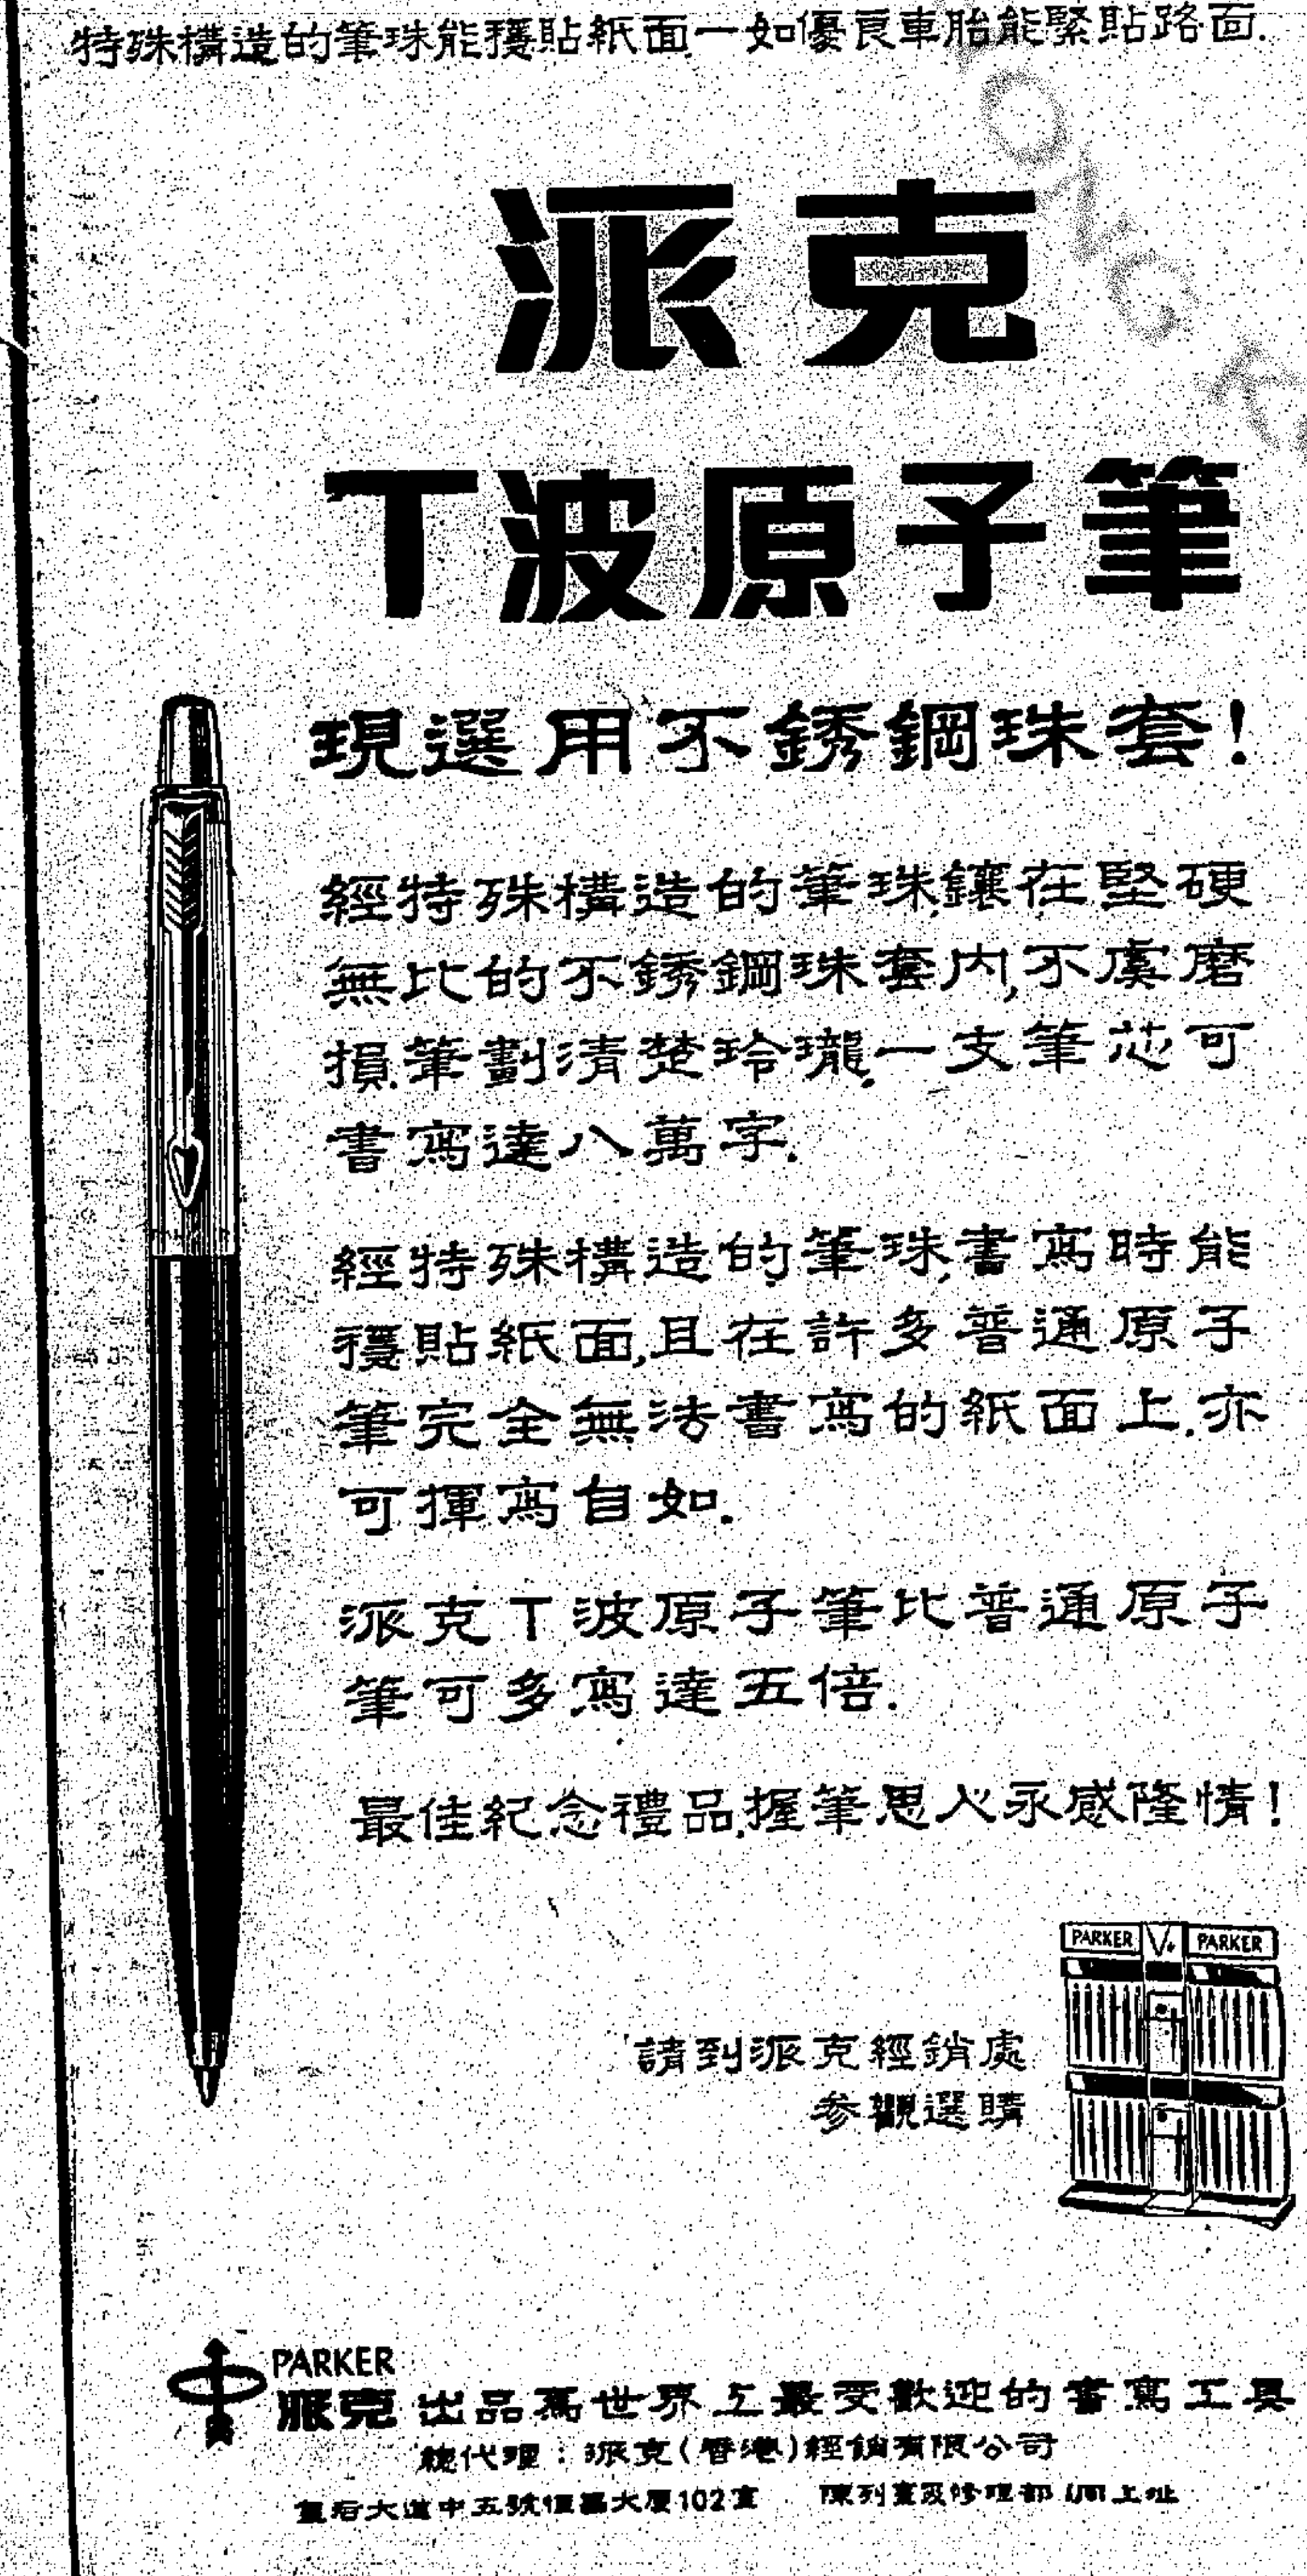 特殊構造的筆珠能穩貼紙面一如優良車胎能緊貼路面.
派克
T波原子筆
現選用不銹鋼珠套!
經特殊構造的筆珠,鑲在堅硬
無比的不銹鋼珠套内,不虞磨
損.筆劃清楚玲瓏,一支筆芯可
書寫達八萬字.
經特殊構造的筆珠,書寫時能
穩貼紙面,且在許多普通原子
筆完全無法書寫的紙面上,亦
可揮寫自如.
派克T波原子筆比普通原子
筆可多寫達五倍.
最佳紀念禮品,握筆思人永感隆情!
PARKER V. PARKER
請到派克經銷處
参觀選購
PARKER
派克 出品為世界上最受歡迎的書寫工具
總代理：派克(香港)經銷有限公司
皇后大道中五號恒昌大厦102室 陳列室及修理部 同上址